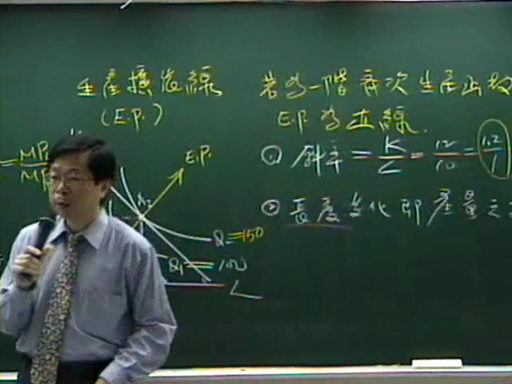 生產擴張線
(E.P.)
若為一階齊次生產函數
E.P. 為直線.
= MP
MP
E.P.
① 斜率 = K/L = 12/10 = 1.2/1
② 長度變化即產量之
Q₂=150
Q₁=100
L